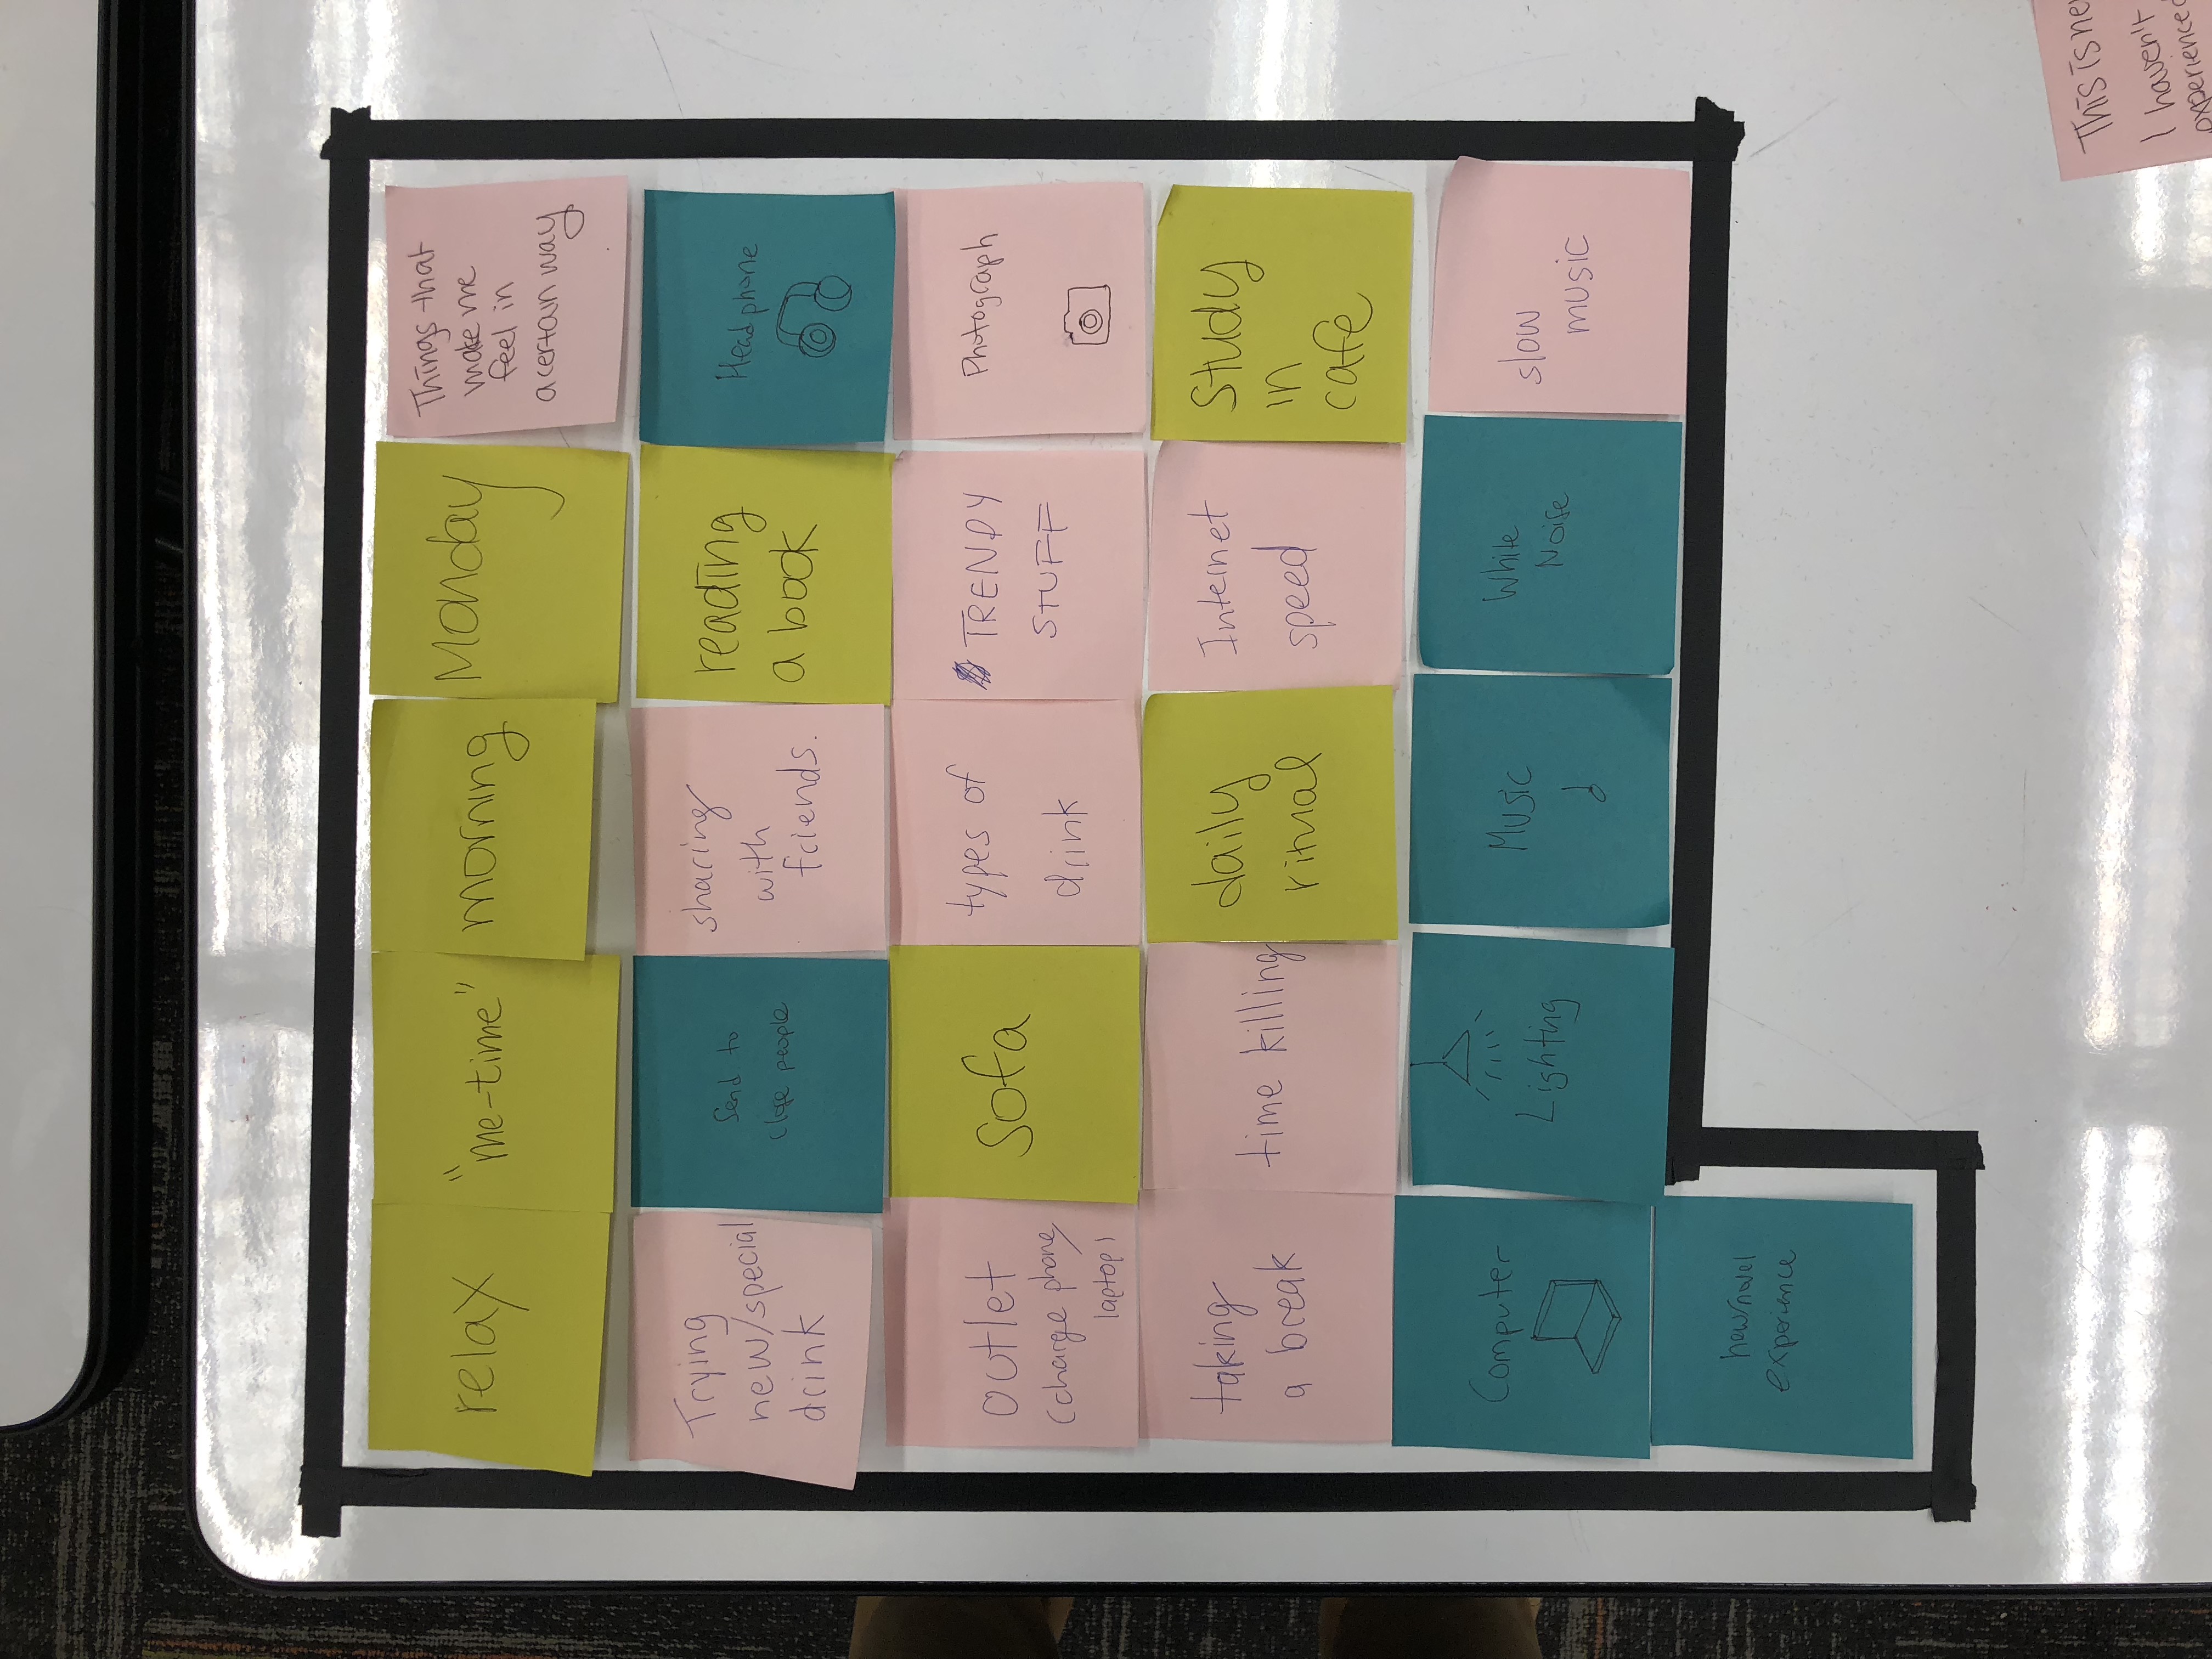 relax
"me-time"
morning
Monday
Things that
make me
feel in
a certain way
Trying
new/special
drink
Send to
close people
sharing
with
friends.
reading
a book
Headphone
outlet
(charge phone,
laptop)
sofa
types of
drink
TRENDY
STUFF
Photograph
taking
a break
time killing
daily
ritual
Internet
speed
Study
in
cafe
Computer
Lighting
Music
White
Noise
slow
music
new/novel
experience
This is
I haven't
experienced